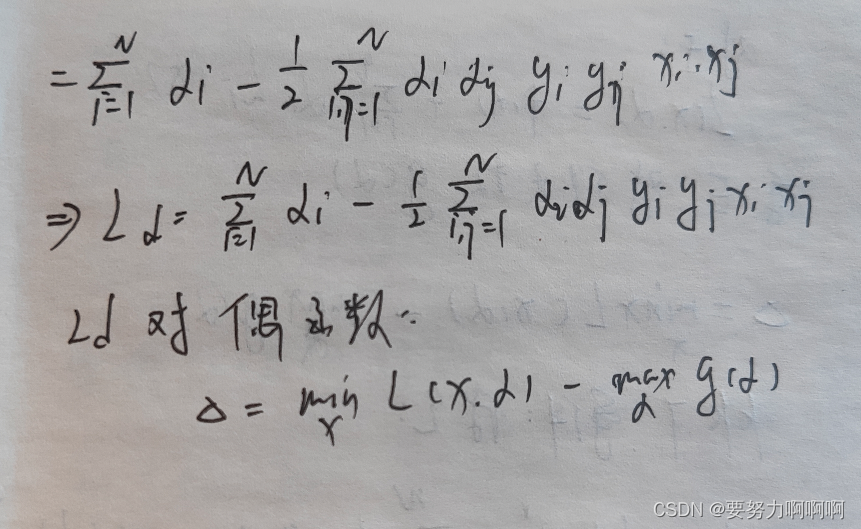 = ∑_{i=1}^{N} αi − 1/2 ∑_{i,j=1}^{N} αi αj yi yj xi·xj
⇒ Ld = ∑_{i=1}^{N} αi − 1/2 ∑_{i,j=1}^{N} αiαj yi yj xi xj
Ld 对偶函数:
Δ = min_x L(x.α) − max_α g(α)
CSDN @要努力啊啊啊